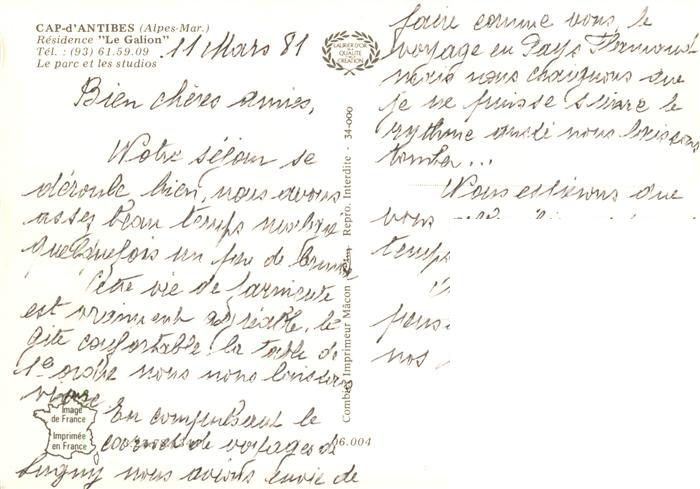 CAP-d'ANTIBES (Alpes-Mar.)
Résidence "Le Galion"
Tél. : (93) 61.59.09
Le parc et les studios
11 Mars 81
Bien chères amies,
Notre séjour se
déroule bien, nous avons
assez beau temps malgré
quelquefois un peu de brume
Cette vie de farniente
est vraiment agréable, le
gîte confortable la table de
1er ordre nous nous laissons
vivre
En compulsant le
carnet de voyages de
Lugny nous avions envie de
LAURIER D'OR
DE
QUALITÉ
DE
CREATION
Combier Imprimeur Mâcon
Repro. Interdite - 34-000
Image
de France
Imprimée
en France
06.004
faire comme vous le
voyage en Pays Flamand
mais nous craignons que
je ne puisse suivre le
rythme aussi nous laissons
tomber...
Nous espérons que
vous
temps
nos